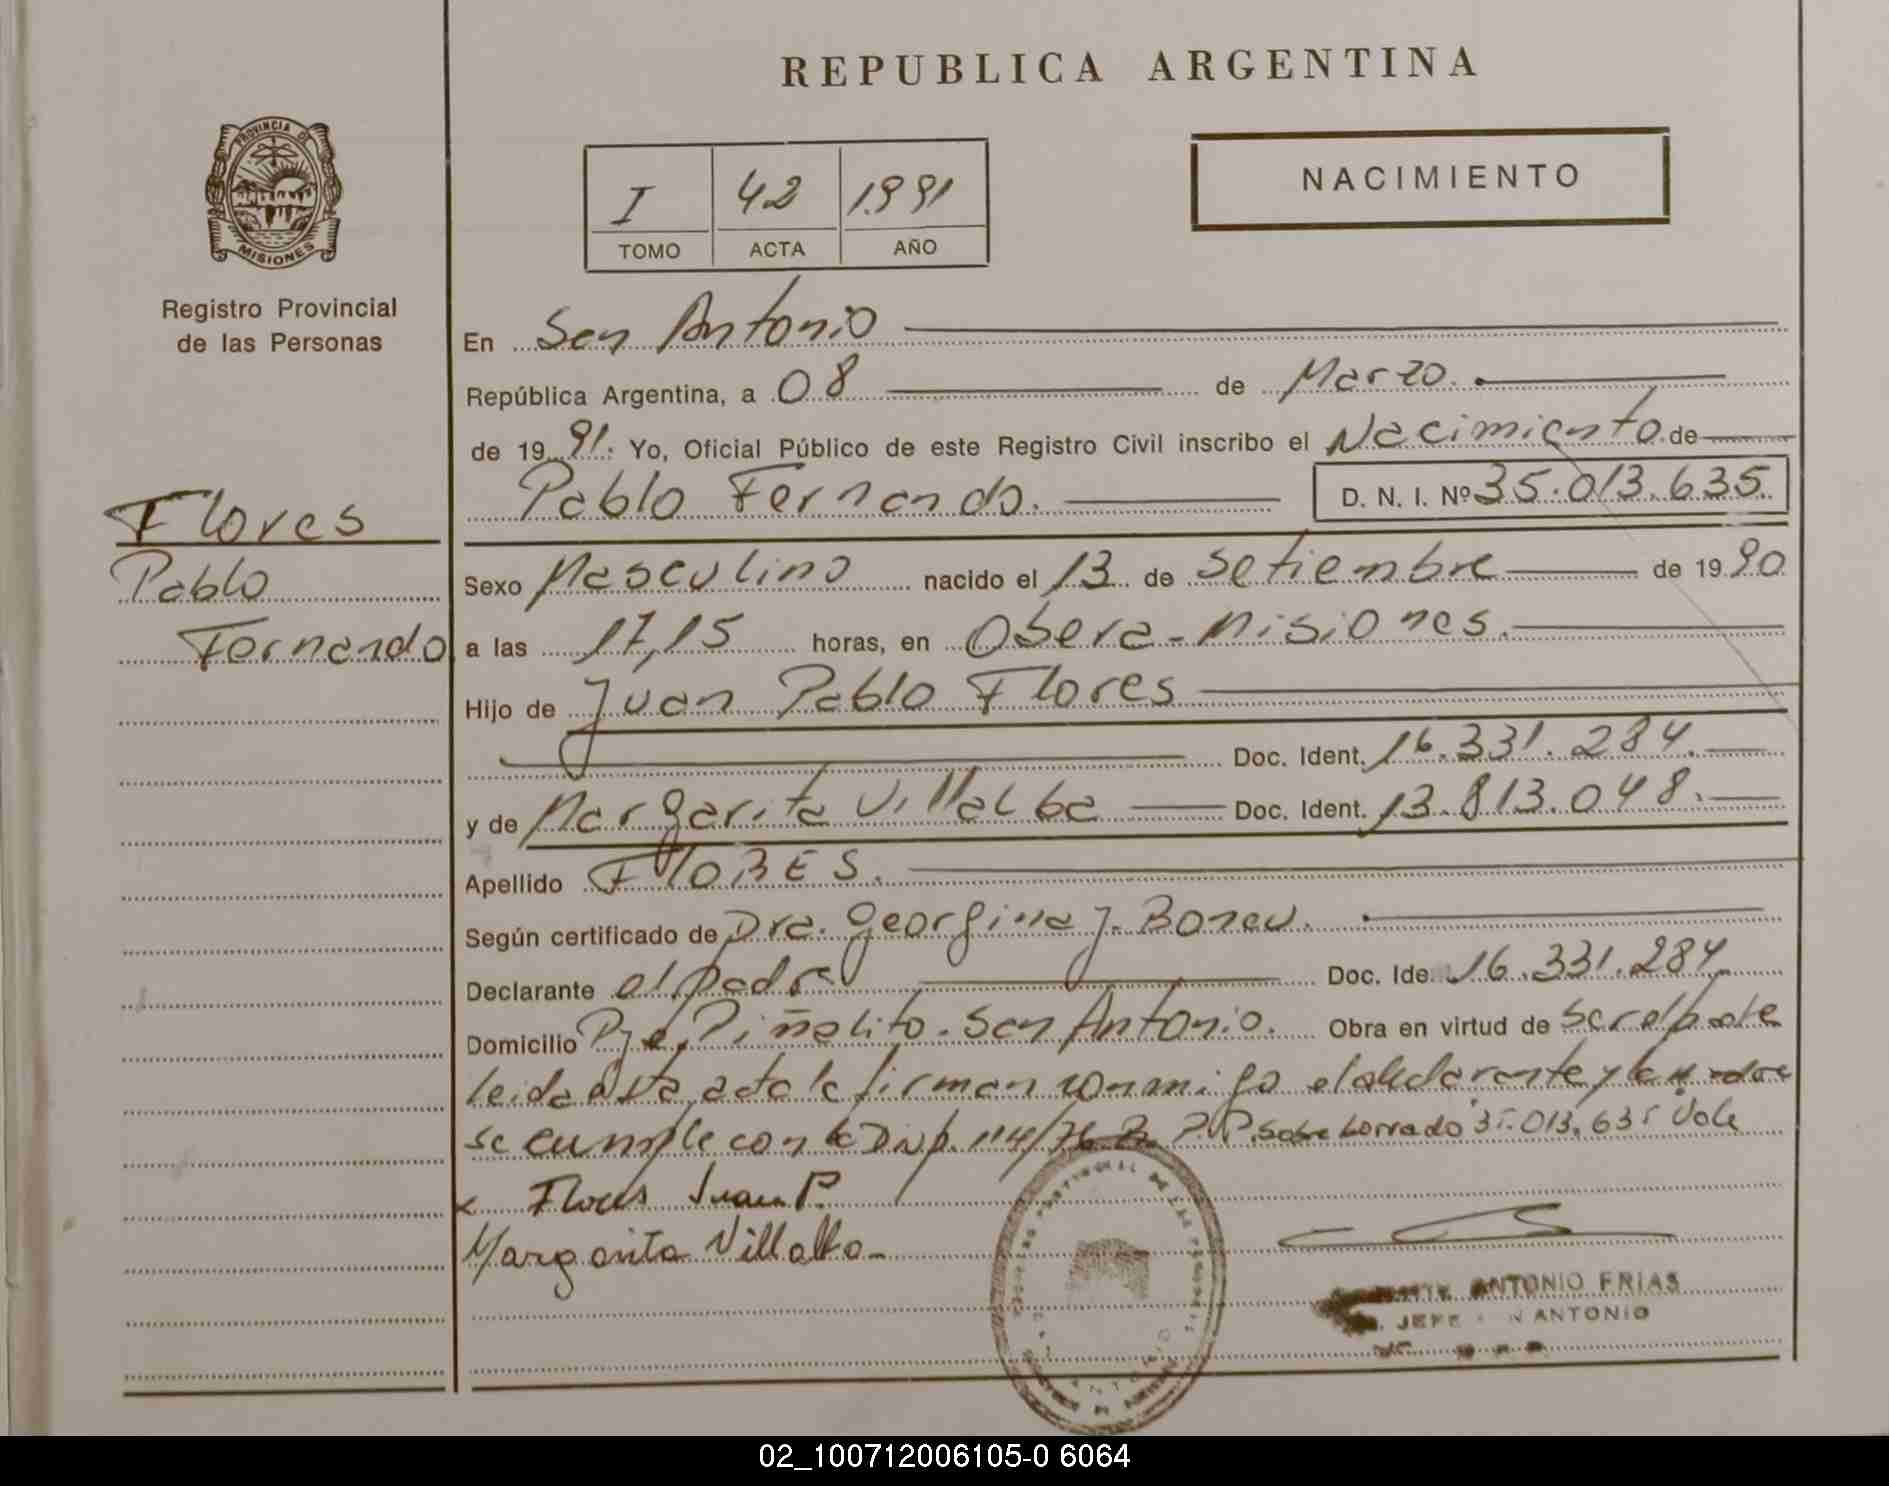 REPUBLICA ARGENTINA
PROVINCIA DE
MISIONES
Registro Provincial
de las Personas
I 42 1.991
TOMO ACTA AÑO
NACIMIENTO
En San Antonio
República Argentina, a 08 de Marzo.
de 19 91. Yo, Oficial Público de este Registro Civil inscribo el Nacimiento de
Pablo Fernando. D. N. I. Nº 35.013.635
Flores
Pablo
Fernando
Sexo Masculino nacido el 13 de Setiembre de 19 90
a las 17,15 horas, en Obera - Misiones.
Hijo de Juan Pablo Flores
Doc. Ident. 16.331.284.
y de Margarita Villalba Doc. Ident. 13.813.048.
Apellido FLORES.
Según certificado de Dra. Georgina J. Boneu.
Declarante el padre Doc. Ide 16.331.284
Domicilio Pje. Piñalito. San Antonio. Obra en virtud de
leida esta acta la firman conmigo el declarante y la madre
se cumple con la Disp. 114/76 Sobre borrado 35.013.635 Vale
x Flores Juan P.
Margarita Villalba -
ANTONIO FRIAS
JEFE ANTONIO
02_100712006105-0 6064